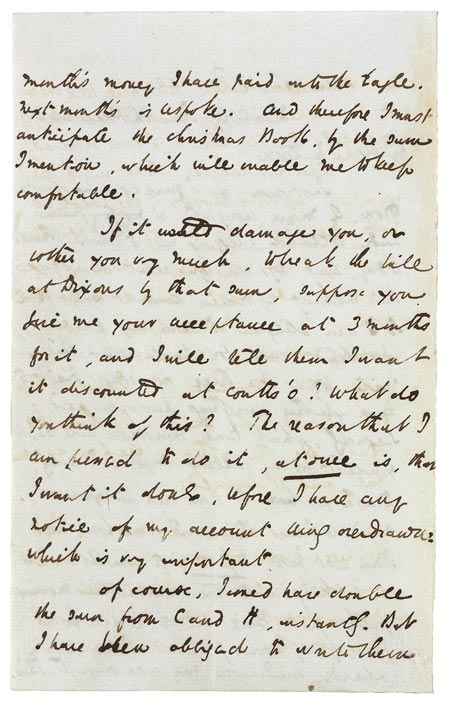 month's money I have paid into the Eagle.
next month's is bespoke. And therefore I must
anticipate the Christmas Book, by the sum
I mention, which will enable me to keep
comfortable.
If it would damage you, or
bother you very much, to break the bill
at Dixons by that sum, suppose you
give me your acceptance at 3 months
for it, and I will tell them I want
it discounted at Coutts's? What do
you think of this? The reason that I
am pressed to do it, at once is, that
I want it done, before I have any
notice of my account being overdrawn:
which is very important.
Of course, I could have double
the sum from C and H, instantly. But
I have been obliged to write them